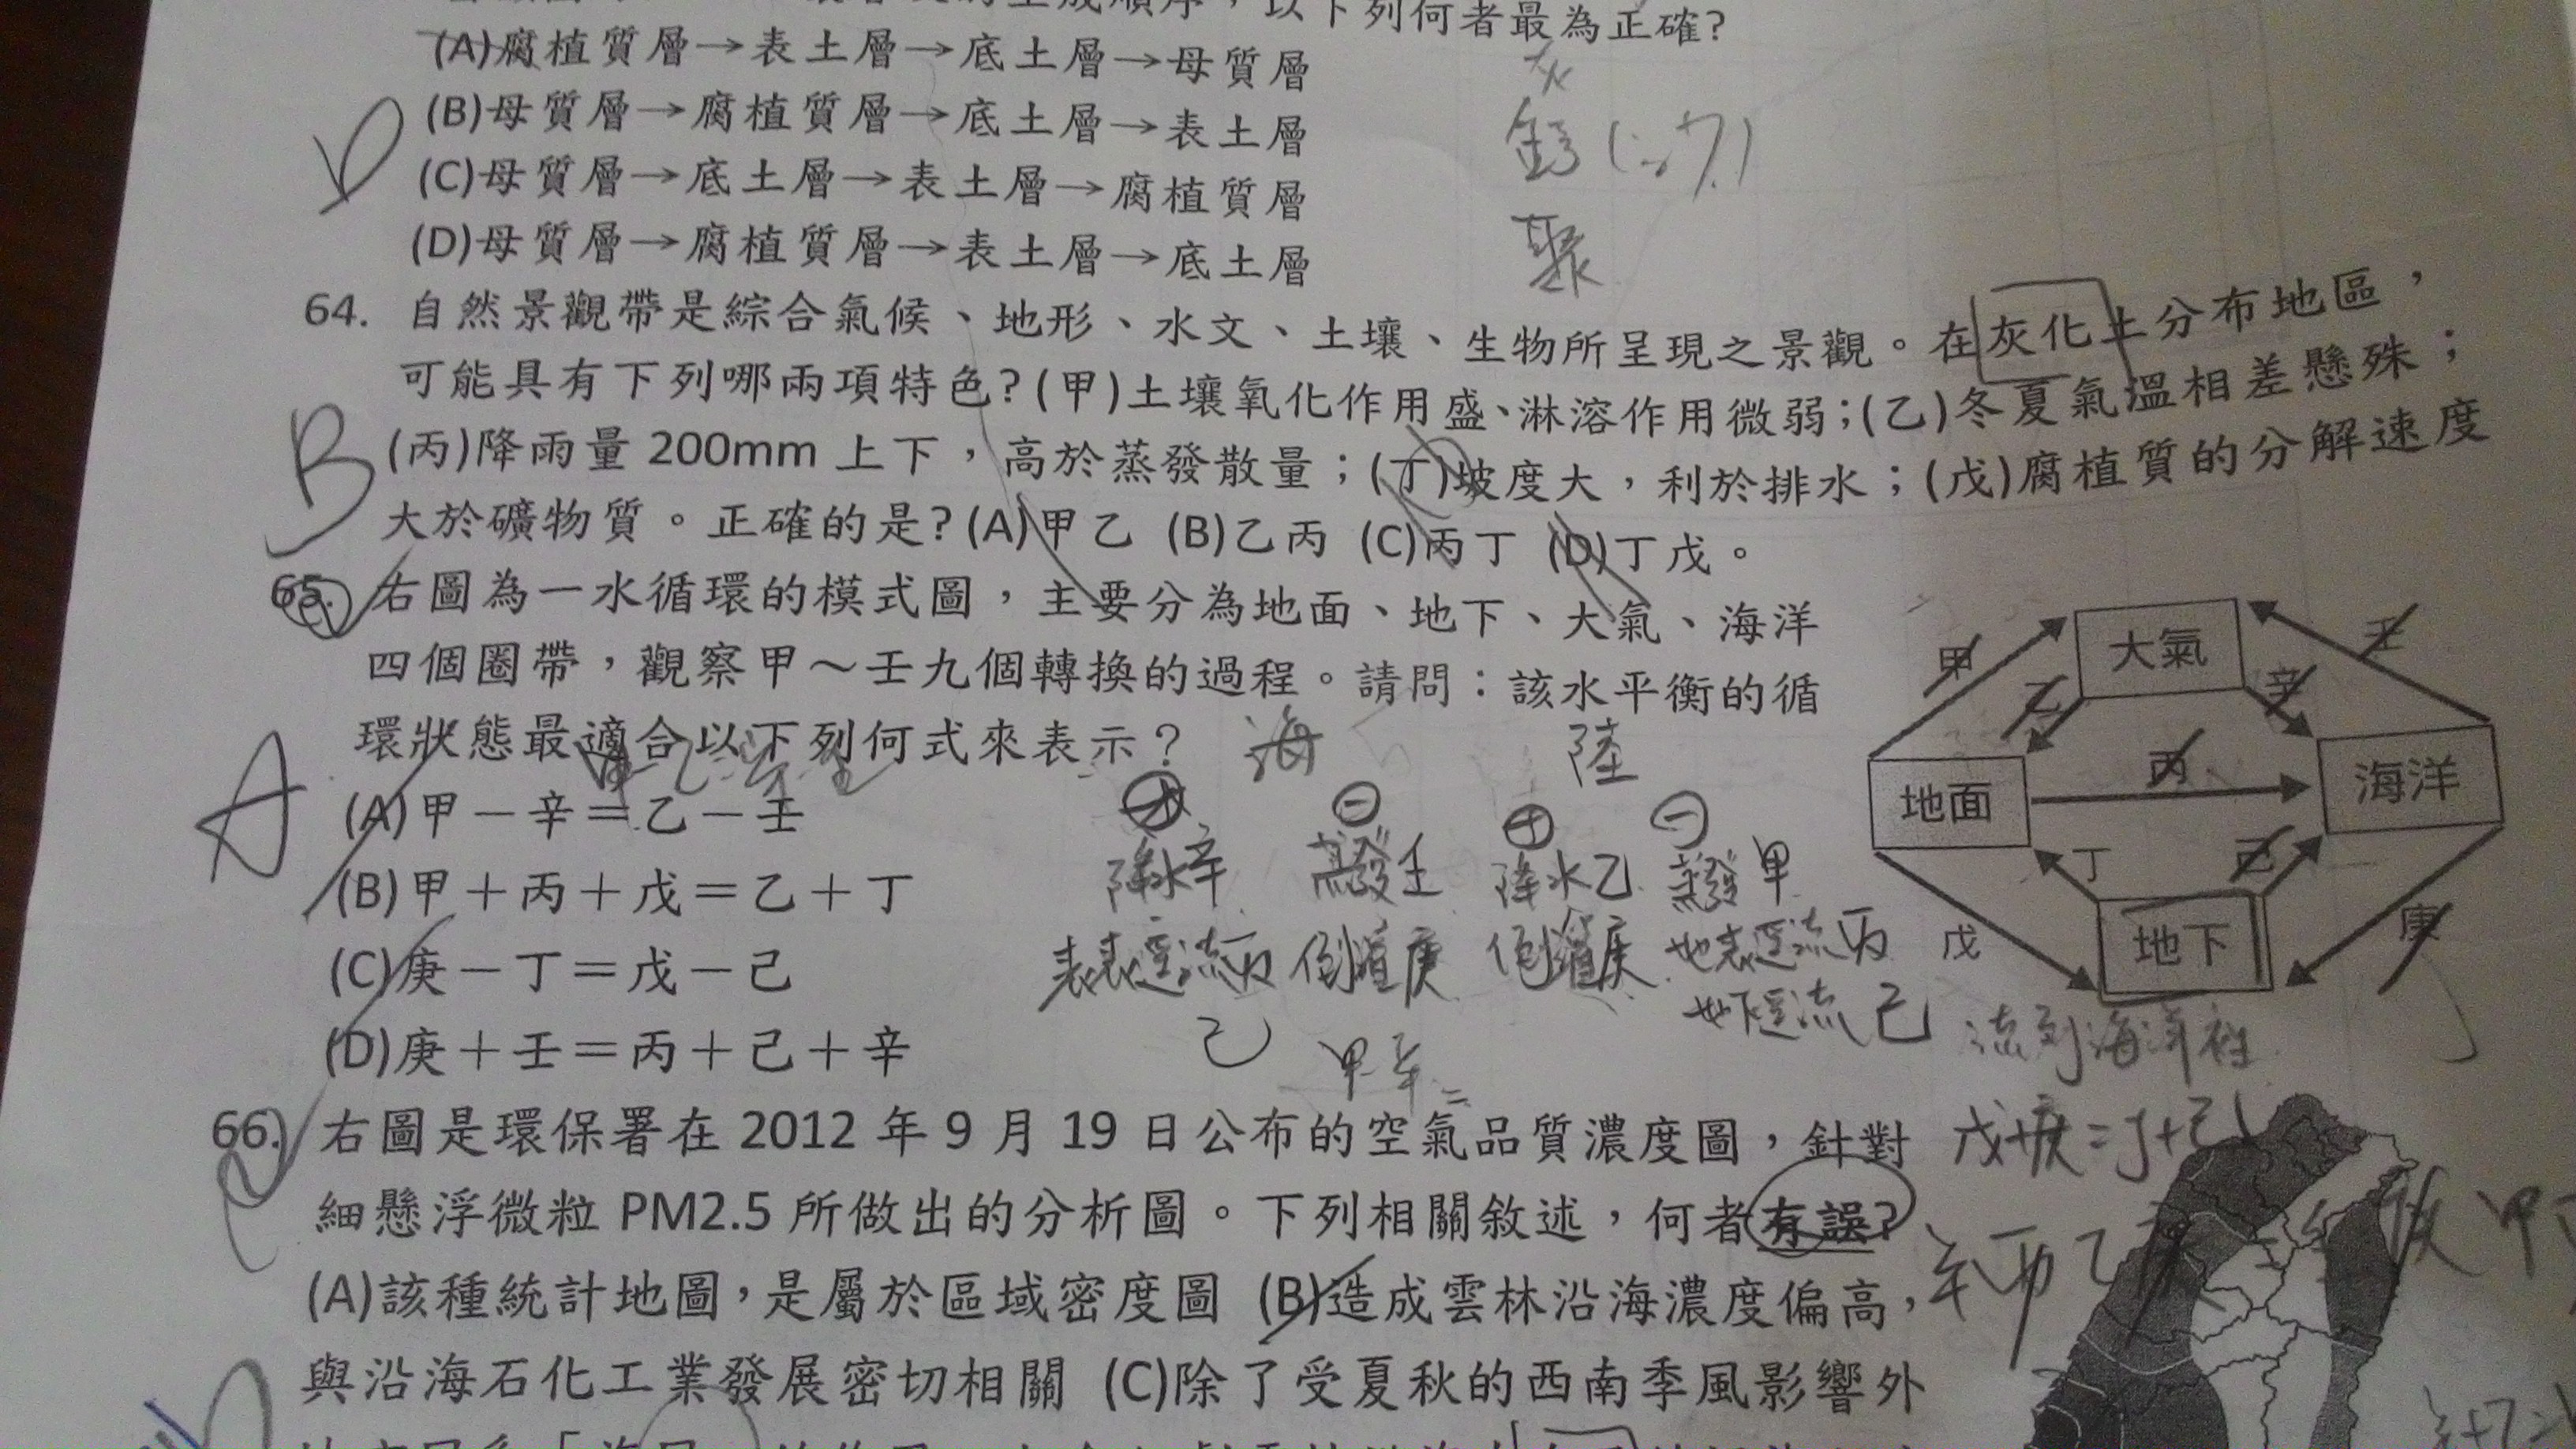 生成順序，以下列何者最為正確?
(A)腐植質層→表土層→底土層→母質層
(B)母質層→腐植質層→底土層→表土層
(C)母質層→底土層→表土層→腐植質層
(D)母質層→腐植質層→表土層→底土層
灰
聚
64. 自然景觀帶是綜合氣候、地形、水文、土壤、生物所呈現之景觀。在灰化土分布地區，
可能具有下列哪兩項特色?(甲)土壤氧化作用盛、淋溶作用微弱；(乙)冬夏氣溫相差懸殊；
B
(丙)降雨量 200mm 上下，高於蒸發散量；(丁)坡度大，利於排水；(戊)腐植質的分解速度
大於礦物質。正確的是?(A)甲乙 (B)乙丙 (C)丙丁 (D)丁戊。
65. 右圖為一水循環的模式圖，主要分為地面、地下、大氣、海洋
四個圈帶，觀察甲～壬九個轉換的過程。請問：該水平衡的循
環狀態最適合以下列何式來表示？
A
(A)甲－辛＝乙－壬
(B)甲＋丙＋戊＝乙＋丁
(C)庚－丁＝戊－己
(D)庚＋壬＝丙＋己＋辛
海 陸
＋ － ＋ －
降水辛 蒸發壬 降水乙 蒸發甲
表逕流丙 倒灌庚 倒灌庚 地表逕流丙
己 地下逕流己
甲辛=
大氣
甲 乙 辛 壬
地面 丙 海洋
丁 己
戊 地下 庚
流到海洋裡
戊+庚=丁+己
66. 右圖是環保署在 2012 年 9 月 19 日公布的空氣品質濃度圖，針對
細懸浮微粒 PM2.5 所做出的分析圖。下列相關敘述，何者有誤?
(A)該種統計地圖，是屬於區域密度圖 (B)造成雲林沿海濃度偏高，
與沿海石化工業發展密切相關 (C)除了受夏秋的西南季風影響外